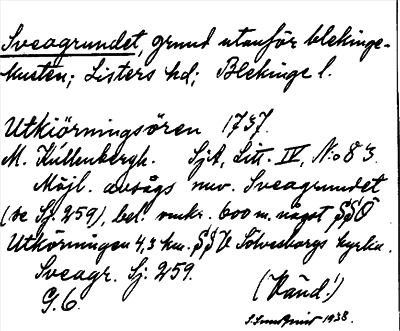 Sveagrundet, grund utanför blekinge-
kusten; Listers hd; Blekinge l.
Utkiörningsören 1737.
M. Küllenbergh. SjA, Litt. IV, No 83.
Möjl. avsågs nuv. Sveagrundet
(se Sj. 259), bel. omkr. 600 m. något SSÖ
Utkörningen 4,3 km. SSV Sölvesborgs kyrka.
Sveagr. Sj. 259.
G.6. (Känd!)
1938.